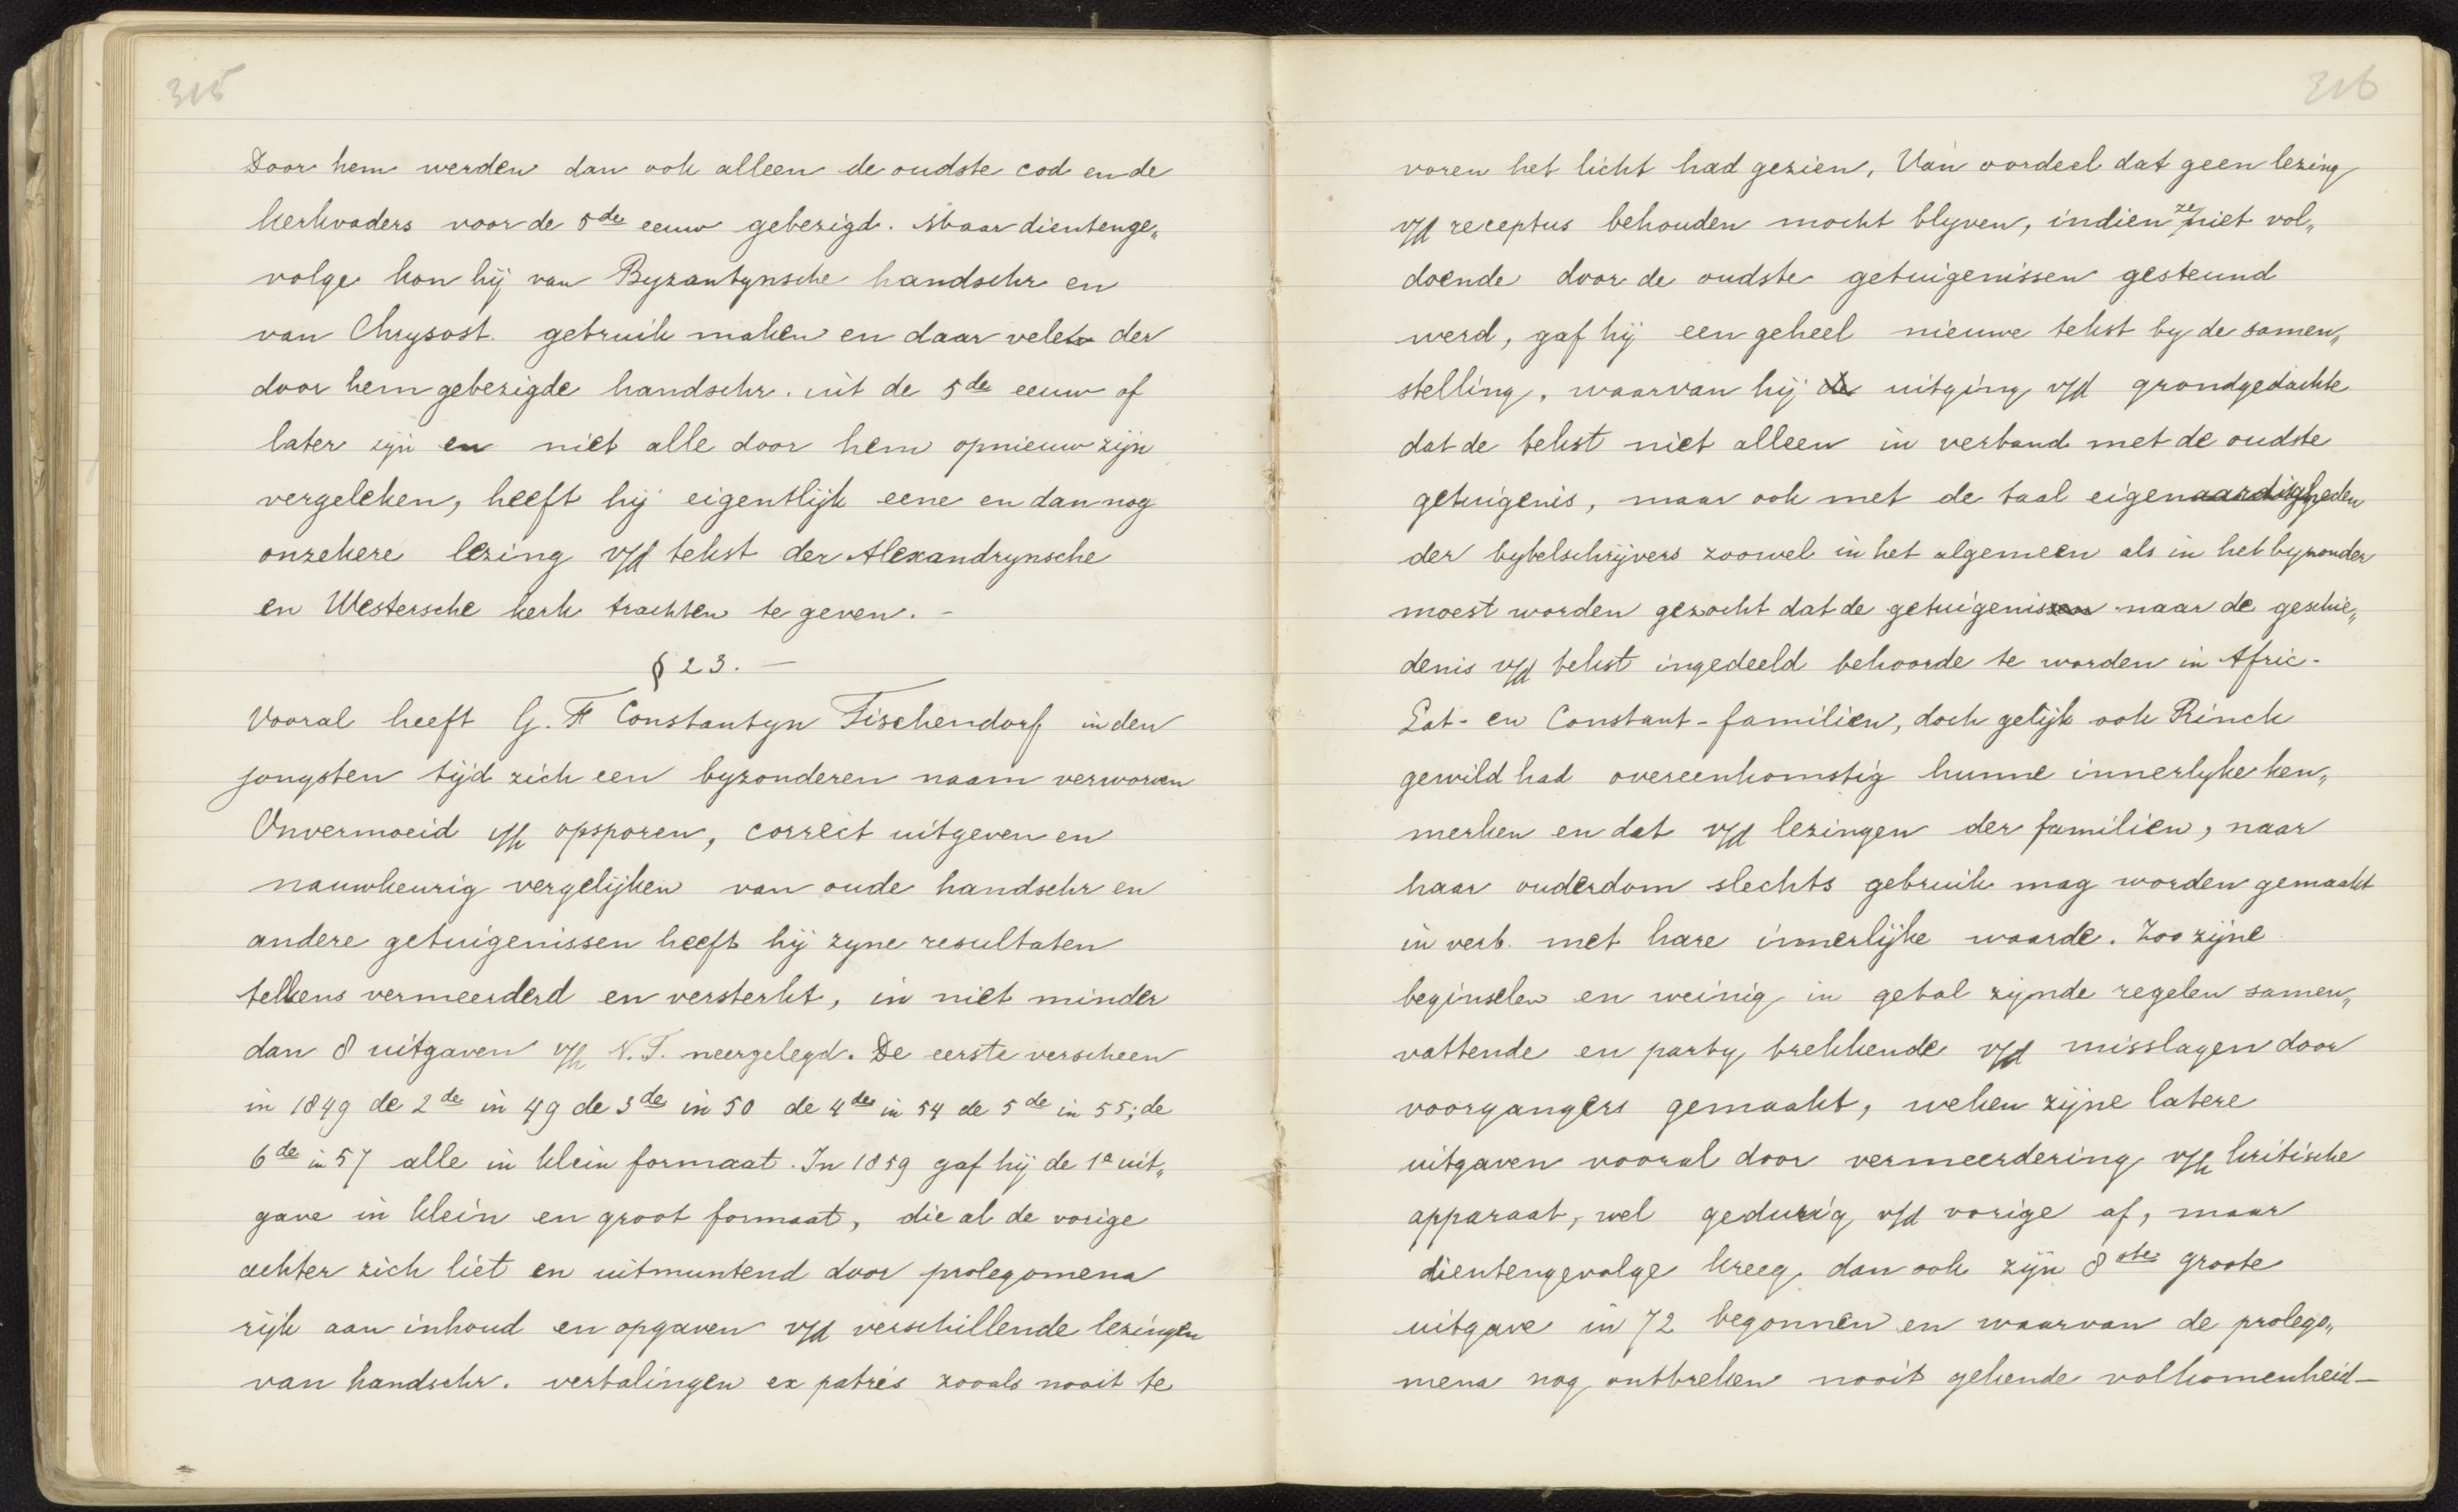 315
Door hem werden dan ook alleen de oudste cod en de
kerkvaders voor de 5de eeuw gebezigd. Maar dientenge„
volge kon hij van Byzantynsche handschr en
van Chrysost. gebruik maken en daar velen der
door hem gebezigde handschr. uit de 5de eeuw of
later zijn en niet alle door hem opnieuw zijn
vergeleken, heeft hij eigentlijk eene en dan nog
onzekere lezing v/d tekst der Alexandrynsche
en Westersche kerk trachten te geven. –
§ 23. –
Vooral heeft G. F Constantyn Tischendorf in den
jongsten tijd zich een byzonderen naam verworven
Onvermoeid i/h opsporen, correct uitgeven en
nauwkeurig vergelijken van oude handschr en
andere getuigenissen heeft hij zyne resultaten
telkens vermeerderd en versterkt, in niet minder
dan 8 uitgaven v/h N.T. neergelegd. De eerste verscheen
in 1849 de 2de in 49 de 3de in 50 de 4de in 54 de 5de in 55; de
6de in 57 alle in klein formaat. In 1859 gaf hij de 1e uit„
gave in klein en groot formaat, die al de vorige
achter zich liet en uitmuntend door prolegomena
rijk aan inhoud en opgaven v/d verschillende lezingen
van handschr. vertalingen ex patres zooals nooit te
316
voren het licht had gezien. Van oordeel dat geen lezing
v/d receptus behouden mocht blyven, indien ze niet vol„
doende door de oudste getuigenissen gesteund
werd, gaf hij een geheel nieuwe tekst by de samen„
stelling, waarvan hij uitging v/d grondgedachte
dat de tekst niet alleen in verband met de oudste
getuigenis, maar ook met de taal eigenaardigheden
der bybelschrijvers zoowel in het algemeen als in het byzonder
moest worden gezocht dat de getuigenissen naar de geschie„
denis v/d tekst ingedeeld behoorde te worden in Afric-
Lat- en Constant-familien, doch gelijk ook Rinck
gewild had overeenkomstig hunne innerlyke ken„
merken en dat v/d lezingen der familien, naar
haar ouderdom slechts gebruik mag worden gemaakt
in verb. met hare innerlijke waarde. Zoo zijne
beginselen en weinig in getal zijnde regelen samen„
vattende en party trekkende v/d misslagen door
voorgangers gemaakt, weken zijne latere
uitgaven vooral door vermeerdering v/h kritische
apparaat, wel gedurig v/d vorige af, maar
dientengevolge kreeg dan ook zijn 8ste groote
uitgave in 72 begonnen en waarvan de prolego„
mena nog ontbreken nooit gekende volkomenheid –